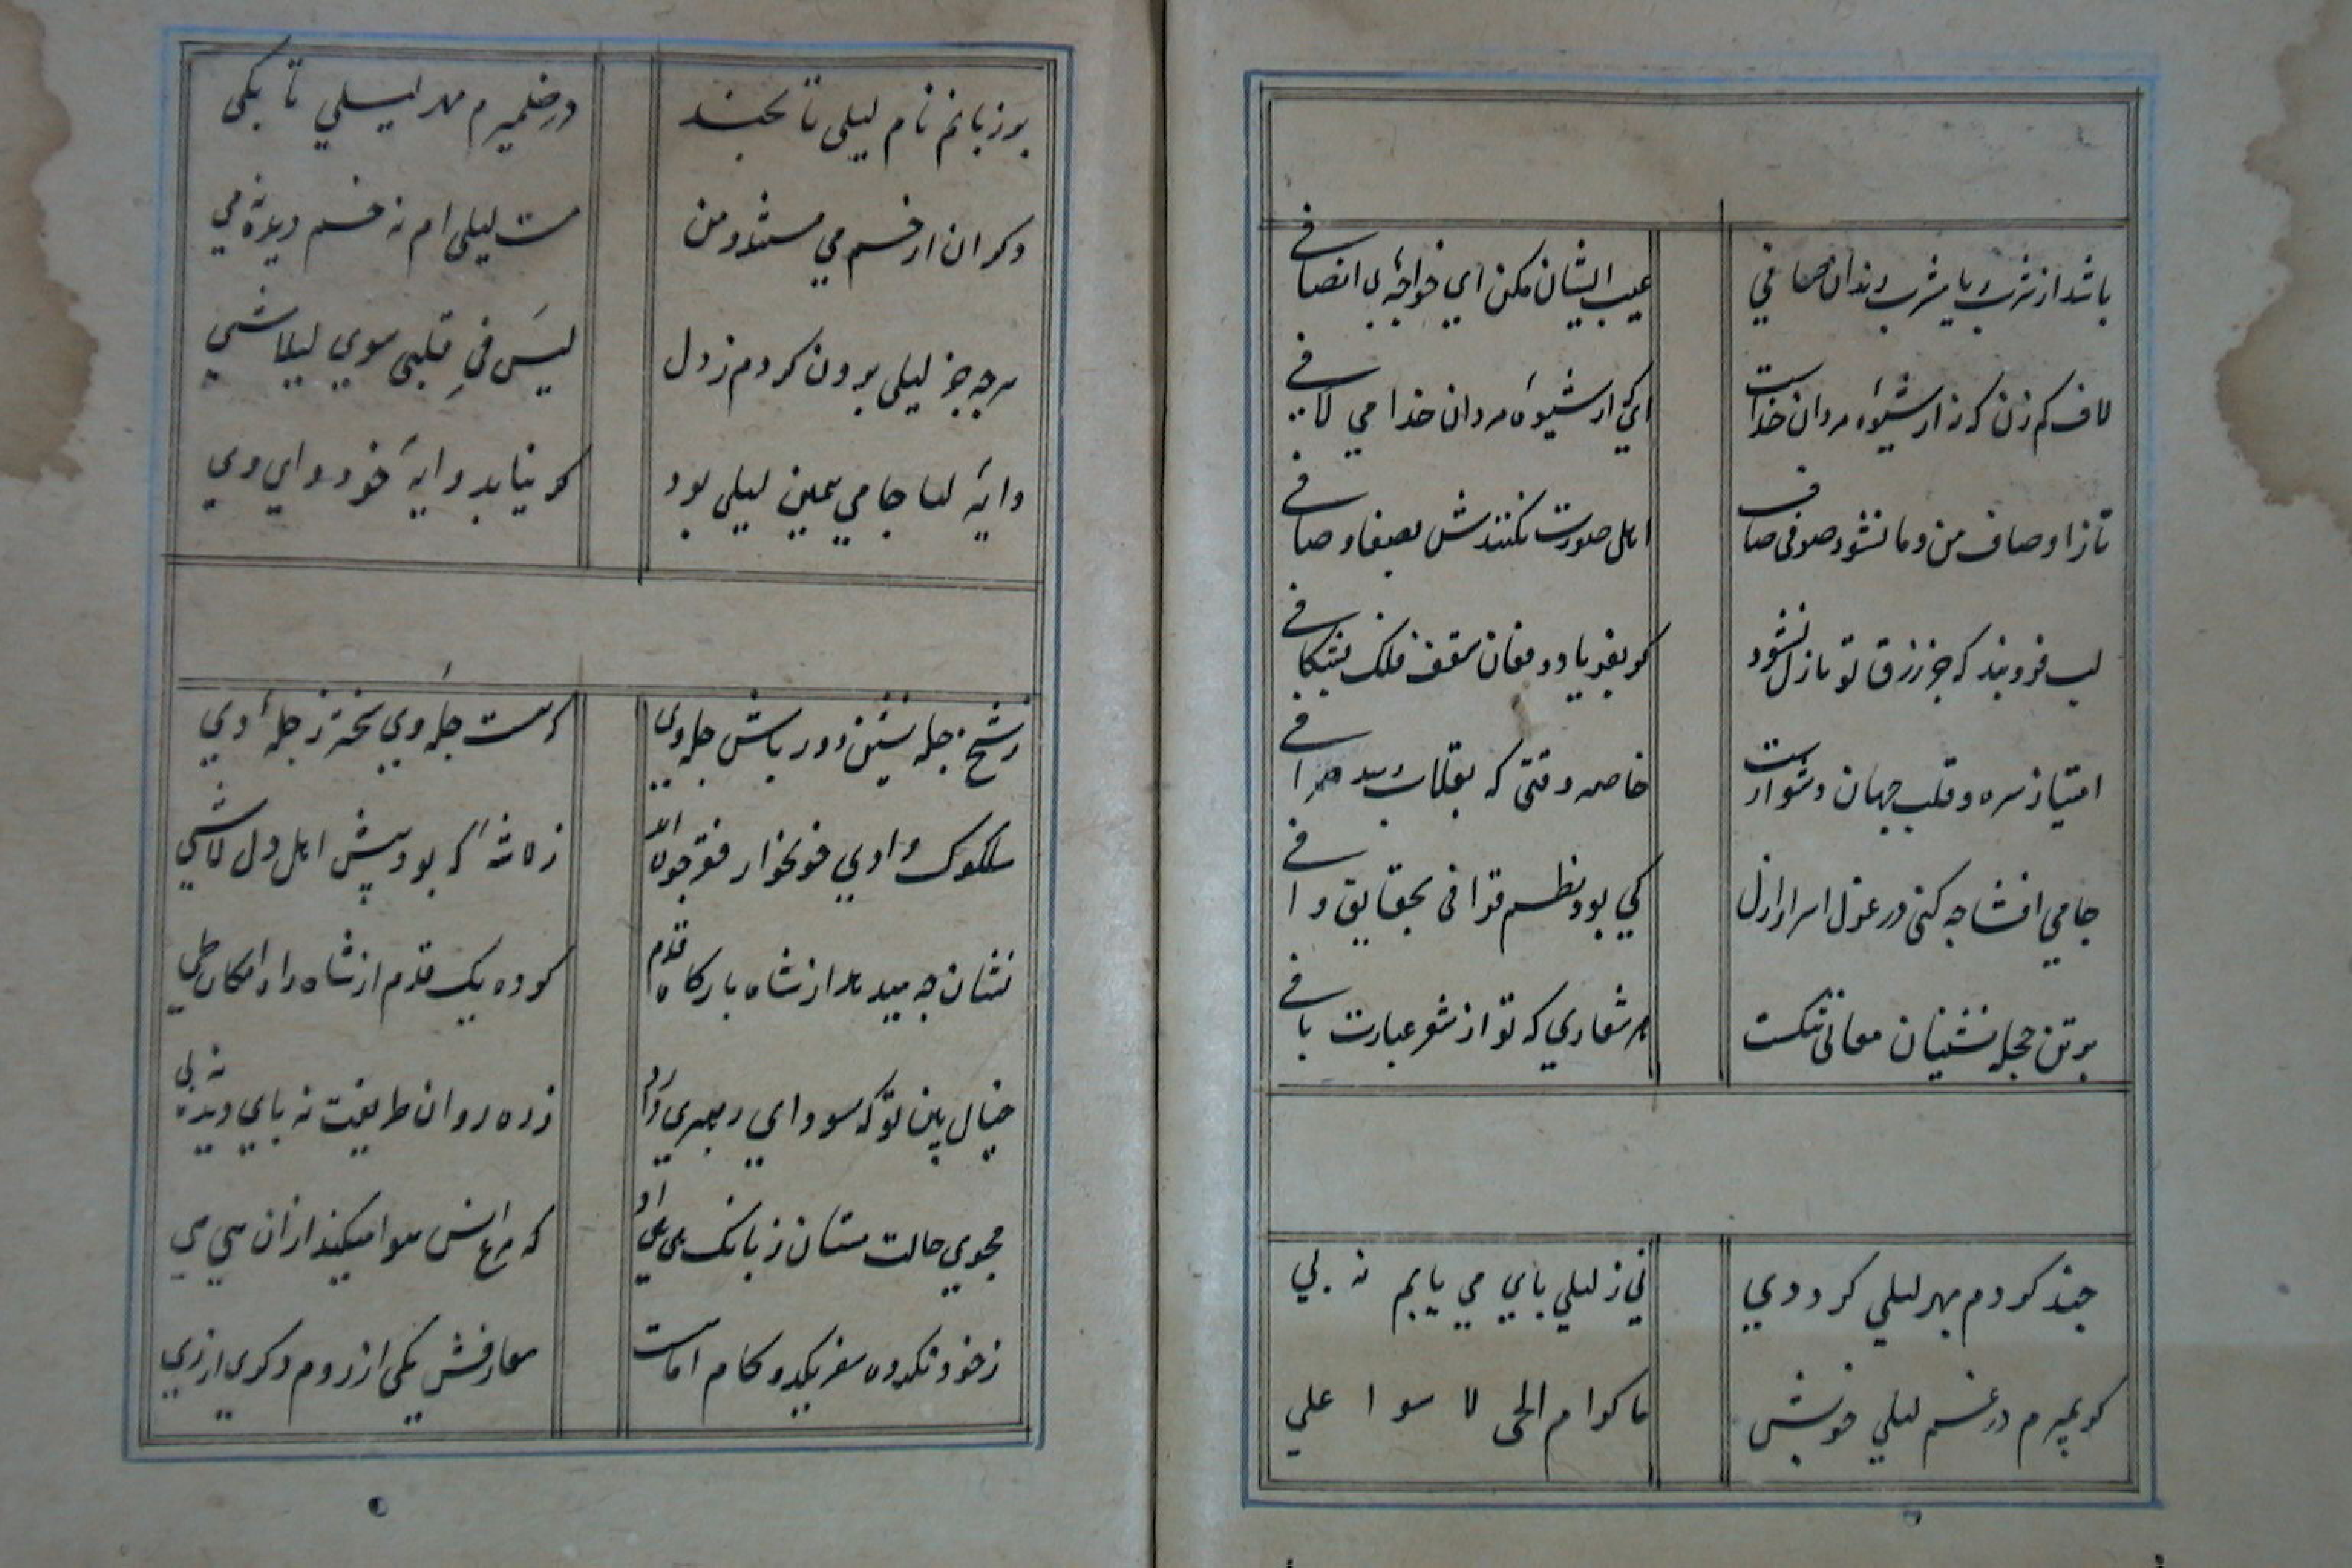 باشد از شرب ریا مشرب رندان صافی
عیب ایشان مکن ای خواجه بی انصافی
لاف کم زن که نه از شیوه مردان خداست
اینکه از شیوه مردان خدا می لافی
تا ز اوصاف من و ما نشود صوفی صاف
اهل صورت نکنندش بصفا وصافی
لب فرو بند که جز رزق تو نازل نشود
کر بفریاد و فغان سقف فلک بشکافی
امتیاز سره و قلب جهان دشوارست
خاصه وقتی که بقلاب رسد صرافی
جامی افشا چه کنی در غزل اسرار ازل
کی بود نظم قوافی بحقایق وافی
بر تن حجله نشینان معانی تنکست
هر شعاری که تو از شعر عبارت بافی
چند کردم بهر لیلی کرد حی
نی ز لیلی بای می یابم نه بی
کر بمیرم در غم لیلی خویش
ها کرام الحی لا سوا علی
بر زبانم نام لیلی تا بچند
در ضمیرم مهر لیلی تا بکی
دکران از خم می مستند و من
مست لیلی ام نه خم دیده نه می
هر چه جز لیلی برون کردم ز دل
لیس فی قلبی سوی لیلا شی
وایه لها جامی همین لیلی بود
کر نیابد وایه خود وای وی
ز شیخ چله نشین دور باش چله وی
که هست چله وی پخته ز چله دی
سلوک وادی خونخوار فقر جون
زلاشه که بود پیش اهل دل لاشی
نشان چه میدهد از شاه بارکاه قدم
نکرده یک قدم از شاه راه امکان طی
خیال بین تو که سودای رهبری دارد
ز ره روان طریقت نه بای دیده نه بی
مجوی حالت مستان ز بانک هی هی او
که مرغ انس هوا میکند از آن هی هی
ز خود نکرده سفر یکدو کام اماست
معارفش یکی از روم و دکری از ری